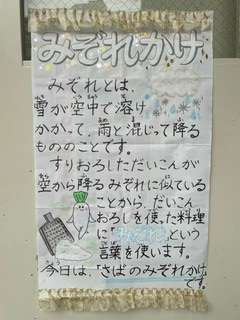 みぞれかけ
みぞれとは、
雪が空中で溶け
かかって、雨と混じって降る
もののことです。
すりおろしただいこんが
空から降るみぞれに似ている
ことから、だいこん
おろしを使った料理
に「みぞれ」という
言葉を使います。
今日は、「さばのみぞれかけ」
です。